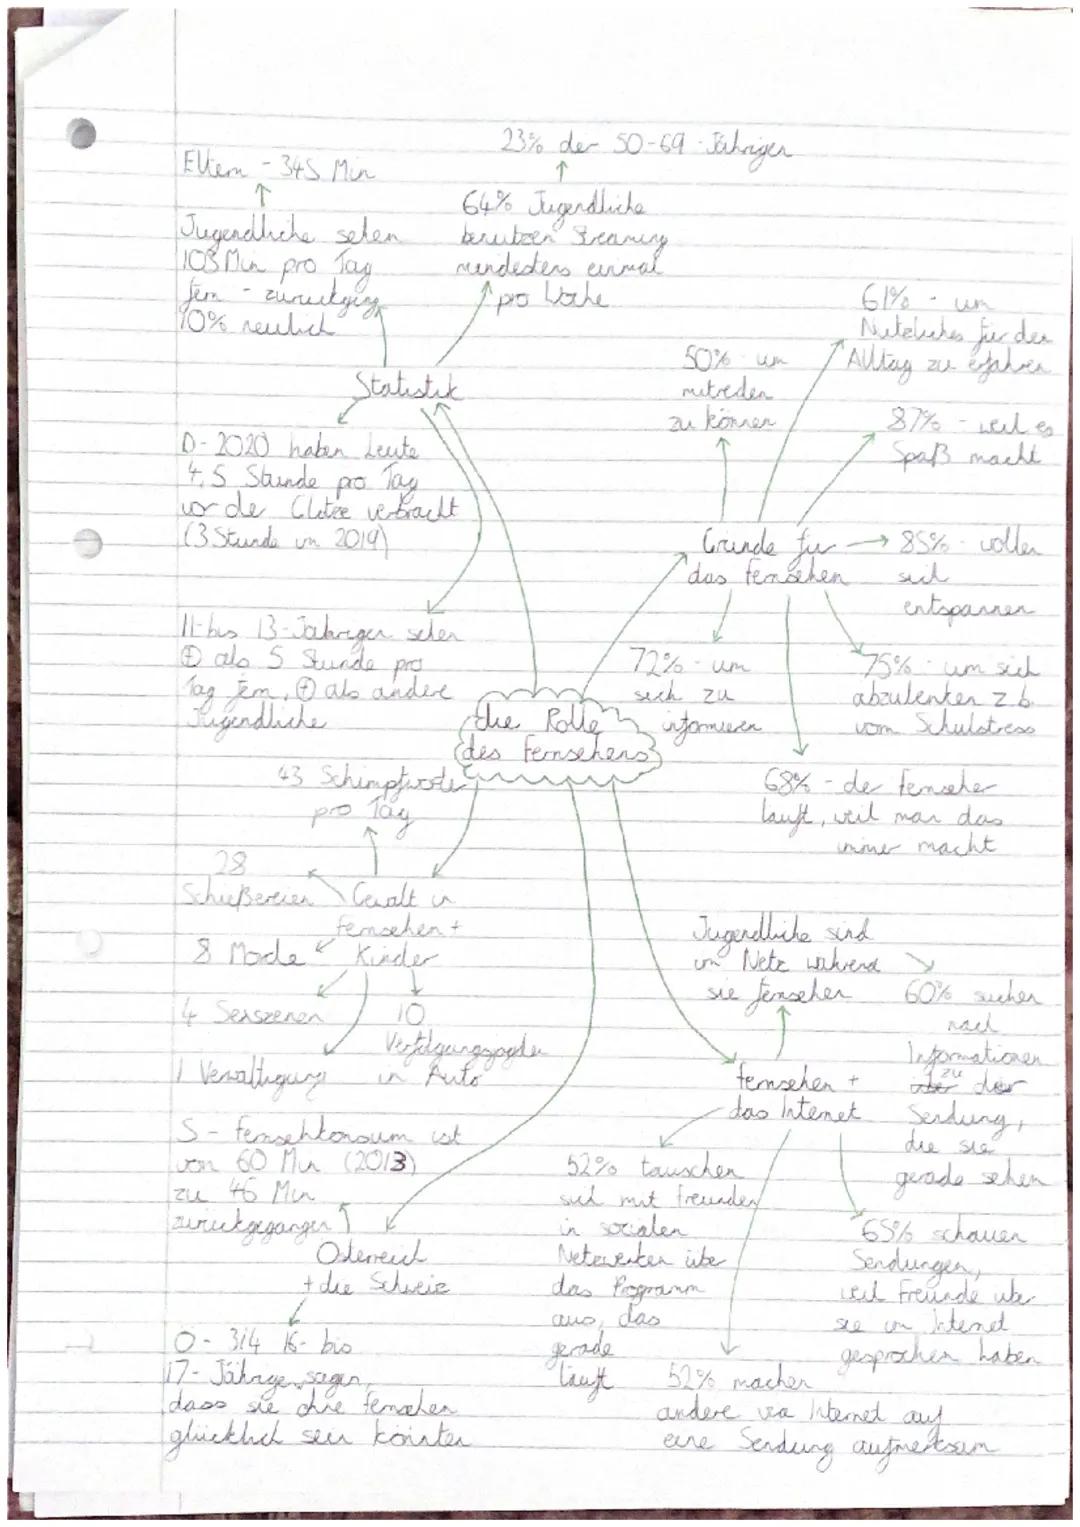 23% der 50-69-Jährigen
Eltern - 345 Min
64% Jugendliche
benutzen Streaming
mindestens einmal
pro Woche
Jugendliche sehen
103 Min pro Tag
fern - zurückging
10% neulich
Statistik
D - 2020 haben Leute
4,5 Stunde pro Tag
vor der Glotze verbracht
(3 Stunde im 2019)
11-bis 13-Jähriger sehen
⊕ als 5 Stunde pro
Tag fern, ⊕ als andere
Jugendliche
61% - um
Nützliches für den
Alltag zu erfahren
50% - um
mitreden
zu können
87% - weil es
Spaß macht
Gründe für
das Fernsehen
85% - wollen
sich
entspannen
72% - um
sich zu
informieren
75% - um sich
abzulenken z.b.
vom Schulstress
68% - der Fernseher
läuft, weil man das
immer macht
die Rolle
des Fernsehens
43 Schimpfworte
pro Tag
28
Schießereien
Gewalt in
Fernsehen +
Kinder
8 Morde
4 Sexszenen
10
Verfolgungsjagden
in Auto
1 Vergewaltigung
Jugendliche sind
im Netz während
sie fernsehen
60% suchen
nach
Informationen
zu der
Sendung,
die sie
gerade sehen
Fernsehen +
das Internet
52% tauschen
sich mit Freunden
in sozialen
Netzwerken über
das Programm
aus, das
gerade
läuft
65% schauen
Sendungen,
weil Freunde über
sie im Internet
gesprochen haben
52% machen
andere via Internet auf
eine Sendung aufmerksam
S - Fernsehkonsum ist
von 60 Min (2013)
zu 46 Min
zurückgegangen
Österreich
+ die Schweiz
Ö - 3/4 16- bis
17-Jährige sagen,
dass sie ohne Fernsehen
glücklich sein könnten